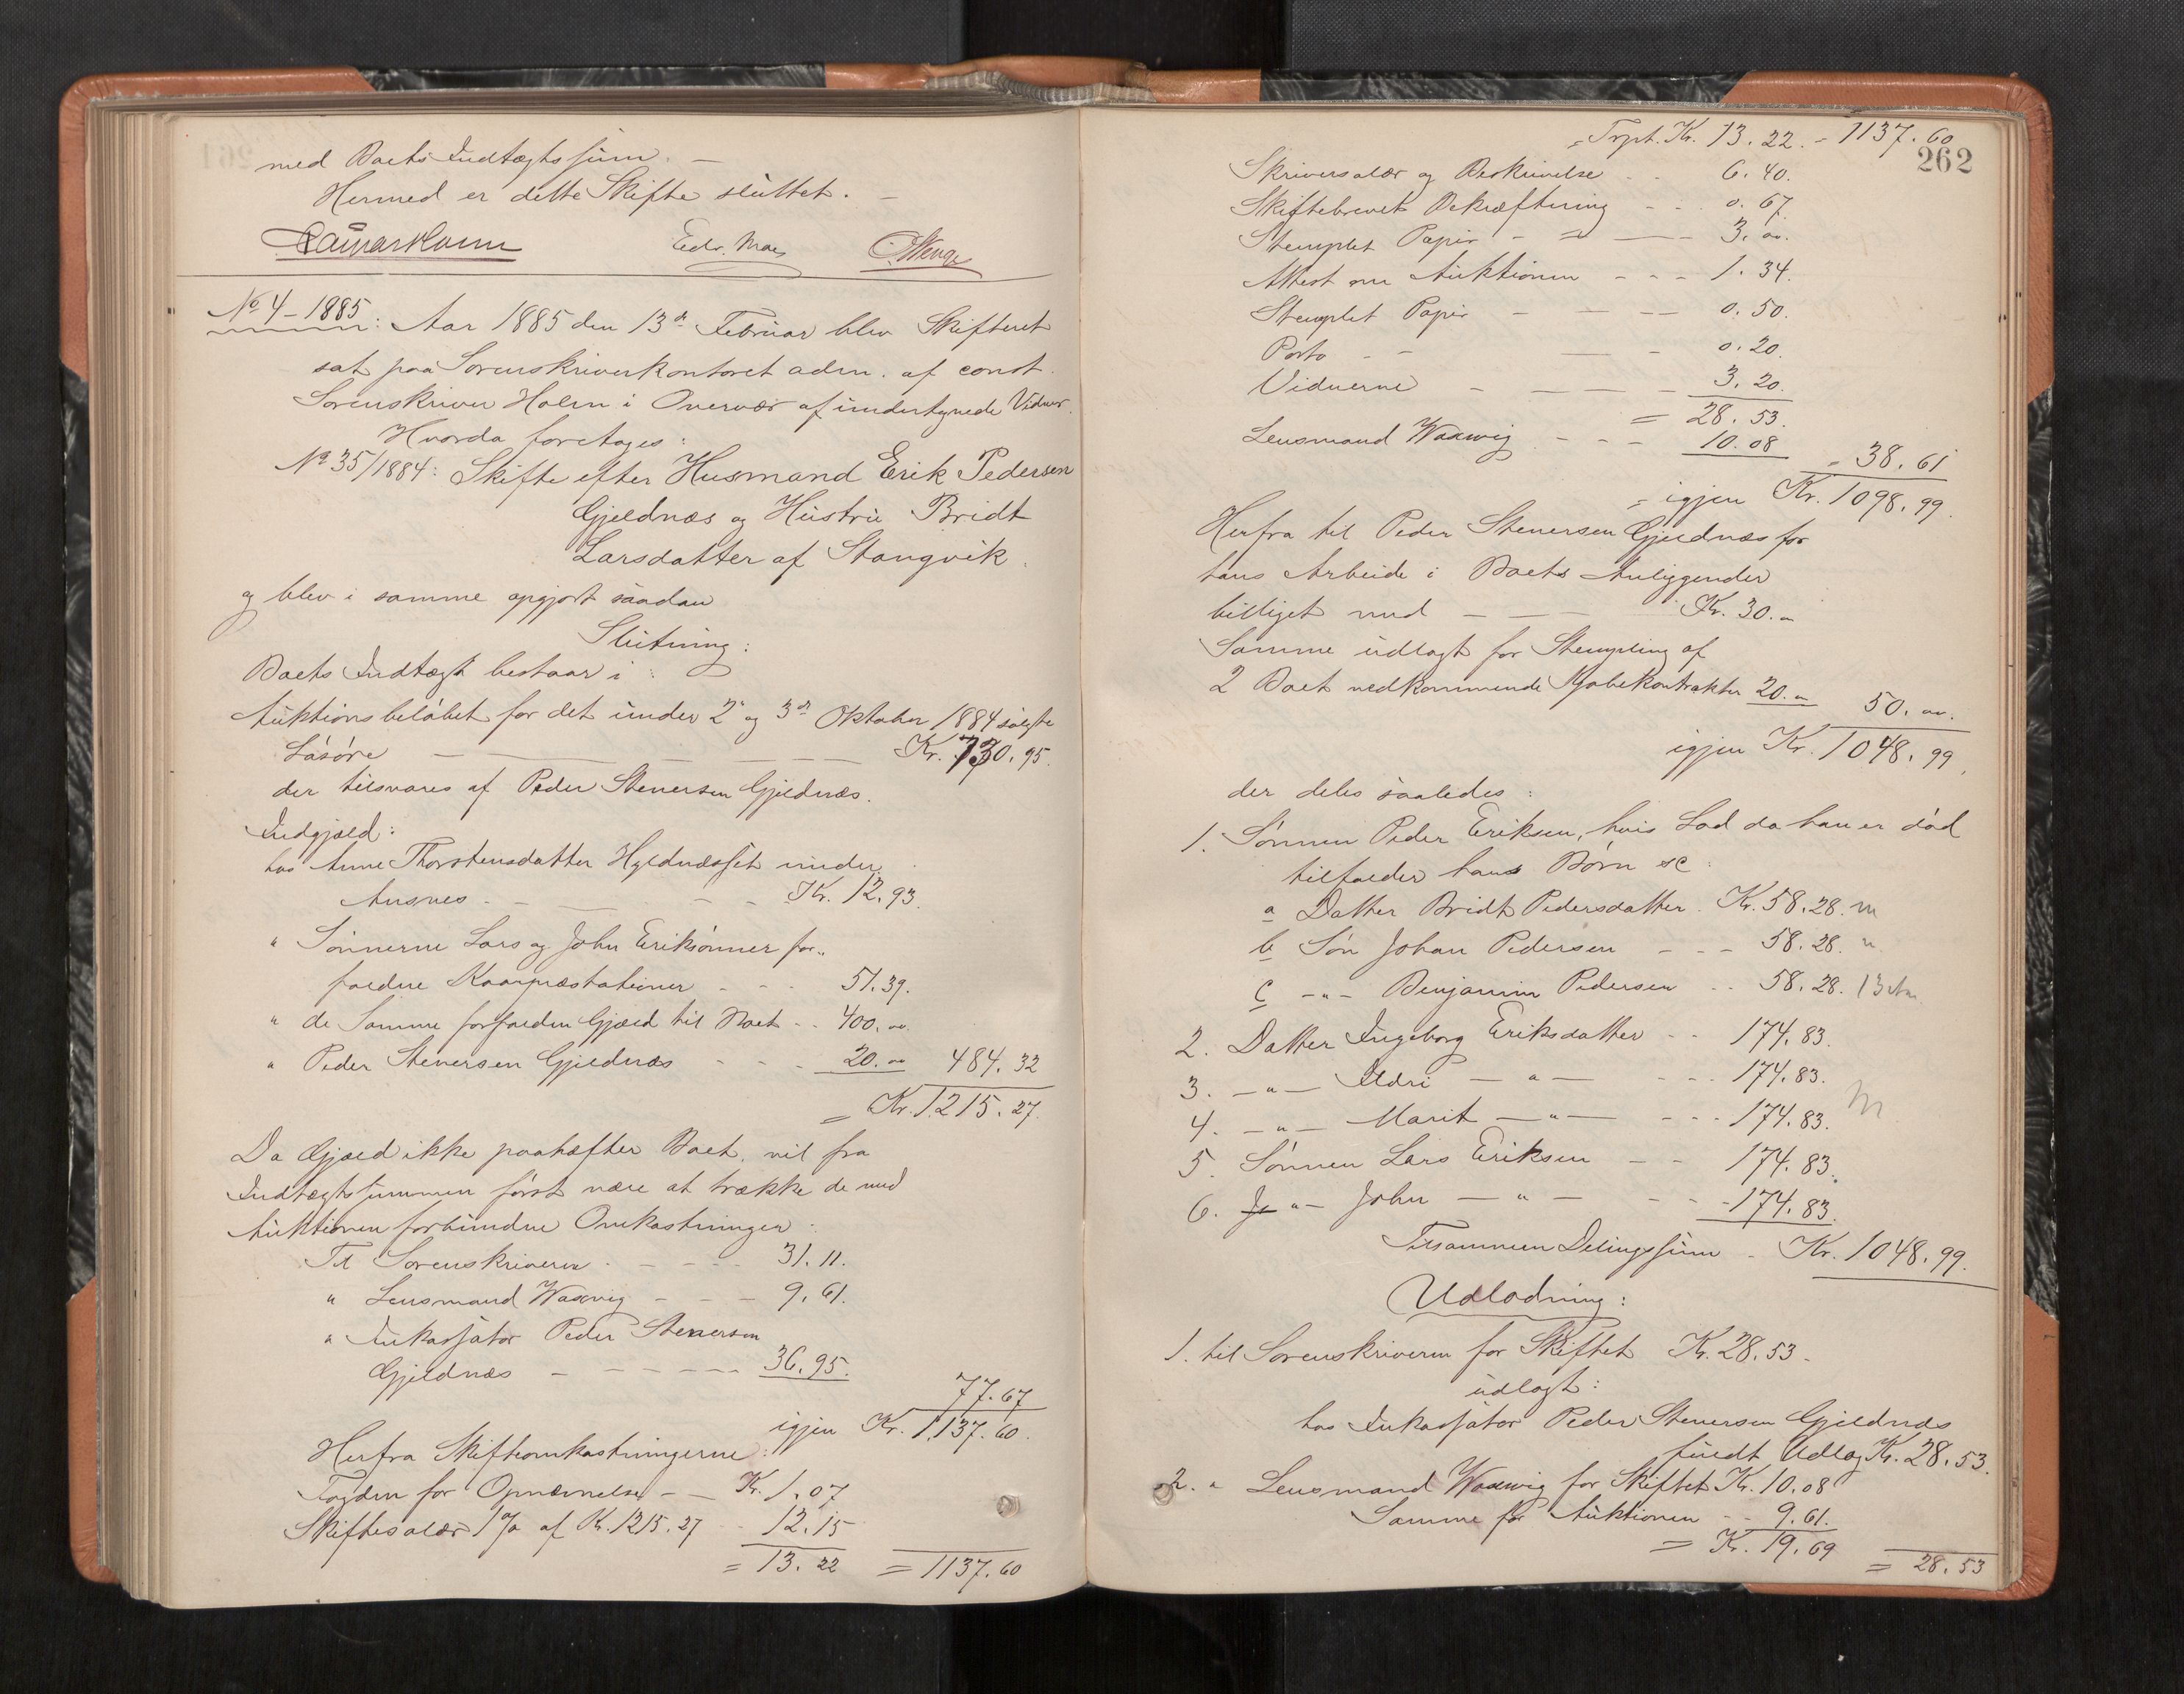 med Boets Indtægtssum. —
Hermed er dette Skifte sluttet. —
Edv. Moe
No 4 - 1885: Aar 1885 den 13de Februar blev Skifteret
sat paa Sorenskriverkontoret adm. af const.
Sorenskriver Holm i Overvær af undertegnede Vidner.
Hvorda foretages:
No 35/1884: Skifte efter Husmand Erik Pedersen
Gjeldnæs og Hustru Bridt
Larsdatter af Stangvik.
og blev i samme opgjort saadan
Slutning:
Boets Indtægt bestaar i:
Auktionsbeløbet for det under 2den og 3die Oktober 1884 solgte
Løsøre — — — — Kr. 730.95.
der tilsvares af Peder Stenersen Gjeldnæs.
Indgjæld:
hos Anne Thorstensdatter Hyldnæsset under
Aasnes - — - - Kr. 12.93.
" Sønnerne Lars og John Erikssønner for-
faldne Kaarpræstationer - - - 51.39.
" de Samme forfalden Gjæld til Boet - - 400. "
" Peder Stenersen Gjeldnæs - - - 20. " 484.32
= Kr. 1215.27.
Da Gjæld ikke paahæfter Boet, vil fra
Indtægtssummen først være at trække de med
Auktionen forbundne Omkostninger:
Til Sorenskriveren - - - - 31.11.
" Lensmand Waxwig - - - 9.61.
" Inkassator Peder Stenersen
Gjeldnæs - - - - - 36.95.
77.67
igjen Kr. 1137.60.
Herfra Skifteomkostningerne:
Fogden for Opnævnelse - — Kr. 1.07
Skiftesalær 1 % af Kr. 1215.27 - - 12.15
= 13.22 = 1137.60
262
= Trpt. Kr. 13.22. = 1137.60
Skriversalær og Beskrivelse - - 6.40.
Skiftebrevets Bekræftning - - - 0.67.
Stemplet Papir - = — — 3. "
Attest om Auktionen - - - 1.34.
Stemplet Papir - — — 0.50.
Porto - - — - 0.20.
Vidnerne - — — — 3.20.
= 28.53.
Lensmand Waxwig - - - 10.08
= 38.61
= igjen Kr. 1098.99.
Herfra til Peder Stenersen Gjeldnæs for
hans Arbeide i Boets Anliggender
billiget med — - — Kr. 30. "
Samme udlagt for Stempling af
2 Boet vedkommende Kjøbekontrakter 20. " 50. "
igjen Kr. 1048.99.
der deles saaledes:
1. Sønnen Peder Eriksen, hvis Lod da han er død
tilfalder hans Børn sc:
a Datter Bridt Pedersdatter. Kr. 58.28. m
b Søn Johan Pedersen - - - 58.28. "
c - " - Benjamin Pedersen - - 58.28.
2. Datter Ingeborg Eriksdatter - - 174.83.
3. — " — Ildri — " — - - - 174.83.
4. — " — Marit — " — - - - 174.83. m
5. Sønnen Lars Eriksen - - - 174.83.
6. - " - John — " — - - - 174.83.
Tilsammen Delingssum - Kr. 1048.99.
Udlodning:
1. til Sorenskriveren for Skiftet Kr. 28.53.
udlagt:
hos Inkassator Peder Stenersen Gjeldnæs
fuldt Udlæg Kr. 28.53.
2. " Lensmand Waxwig for Skiftet Kr. 10.08
Samme for Auktionen - - 9.61.
= Kr. 19.69 = 28.53